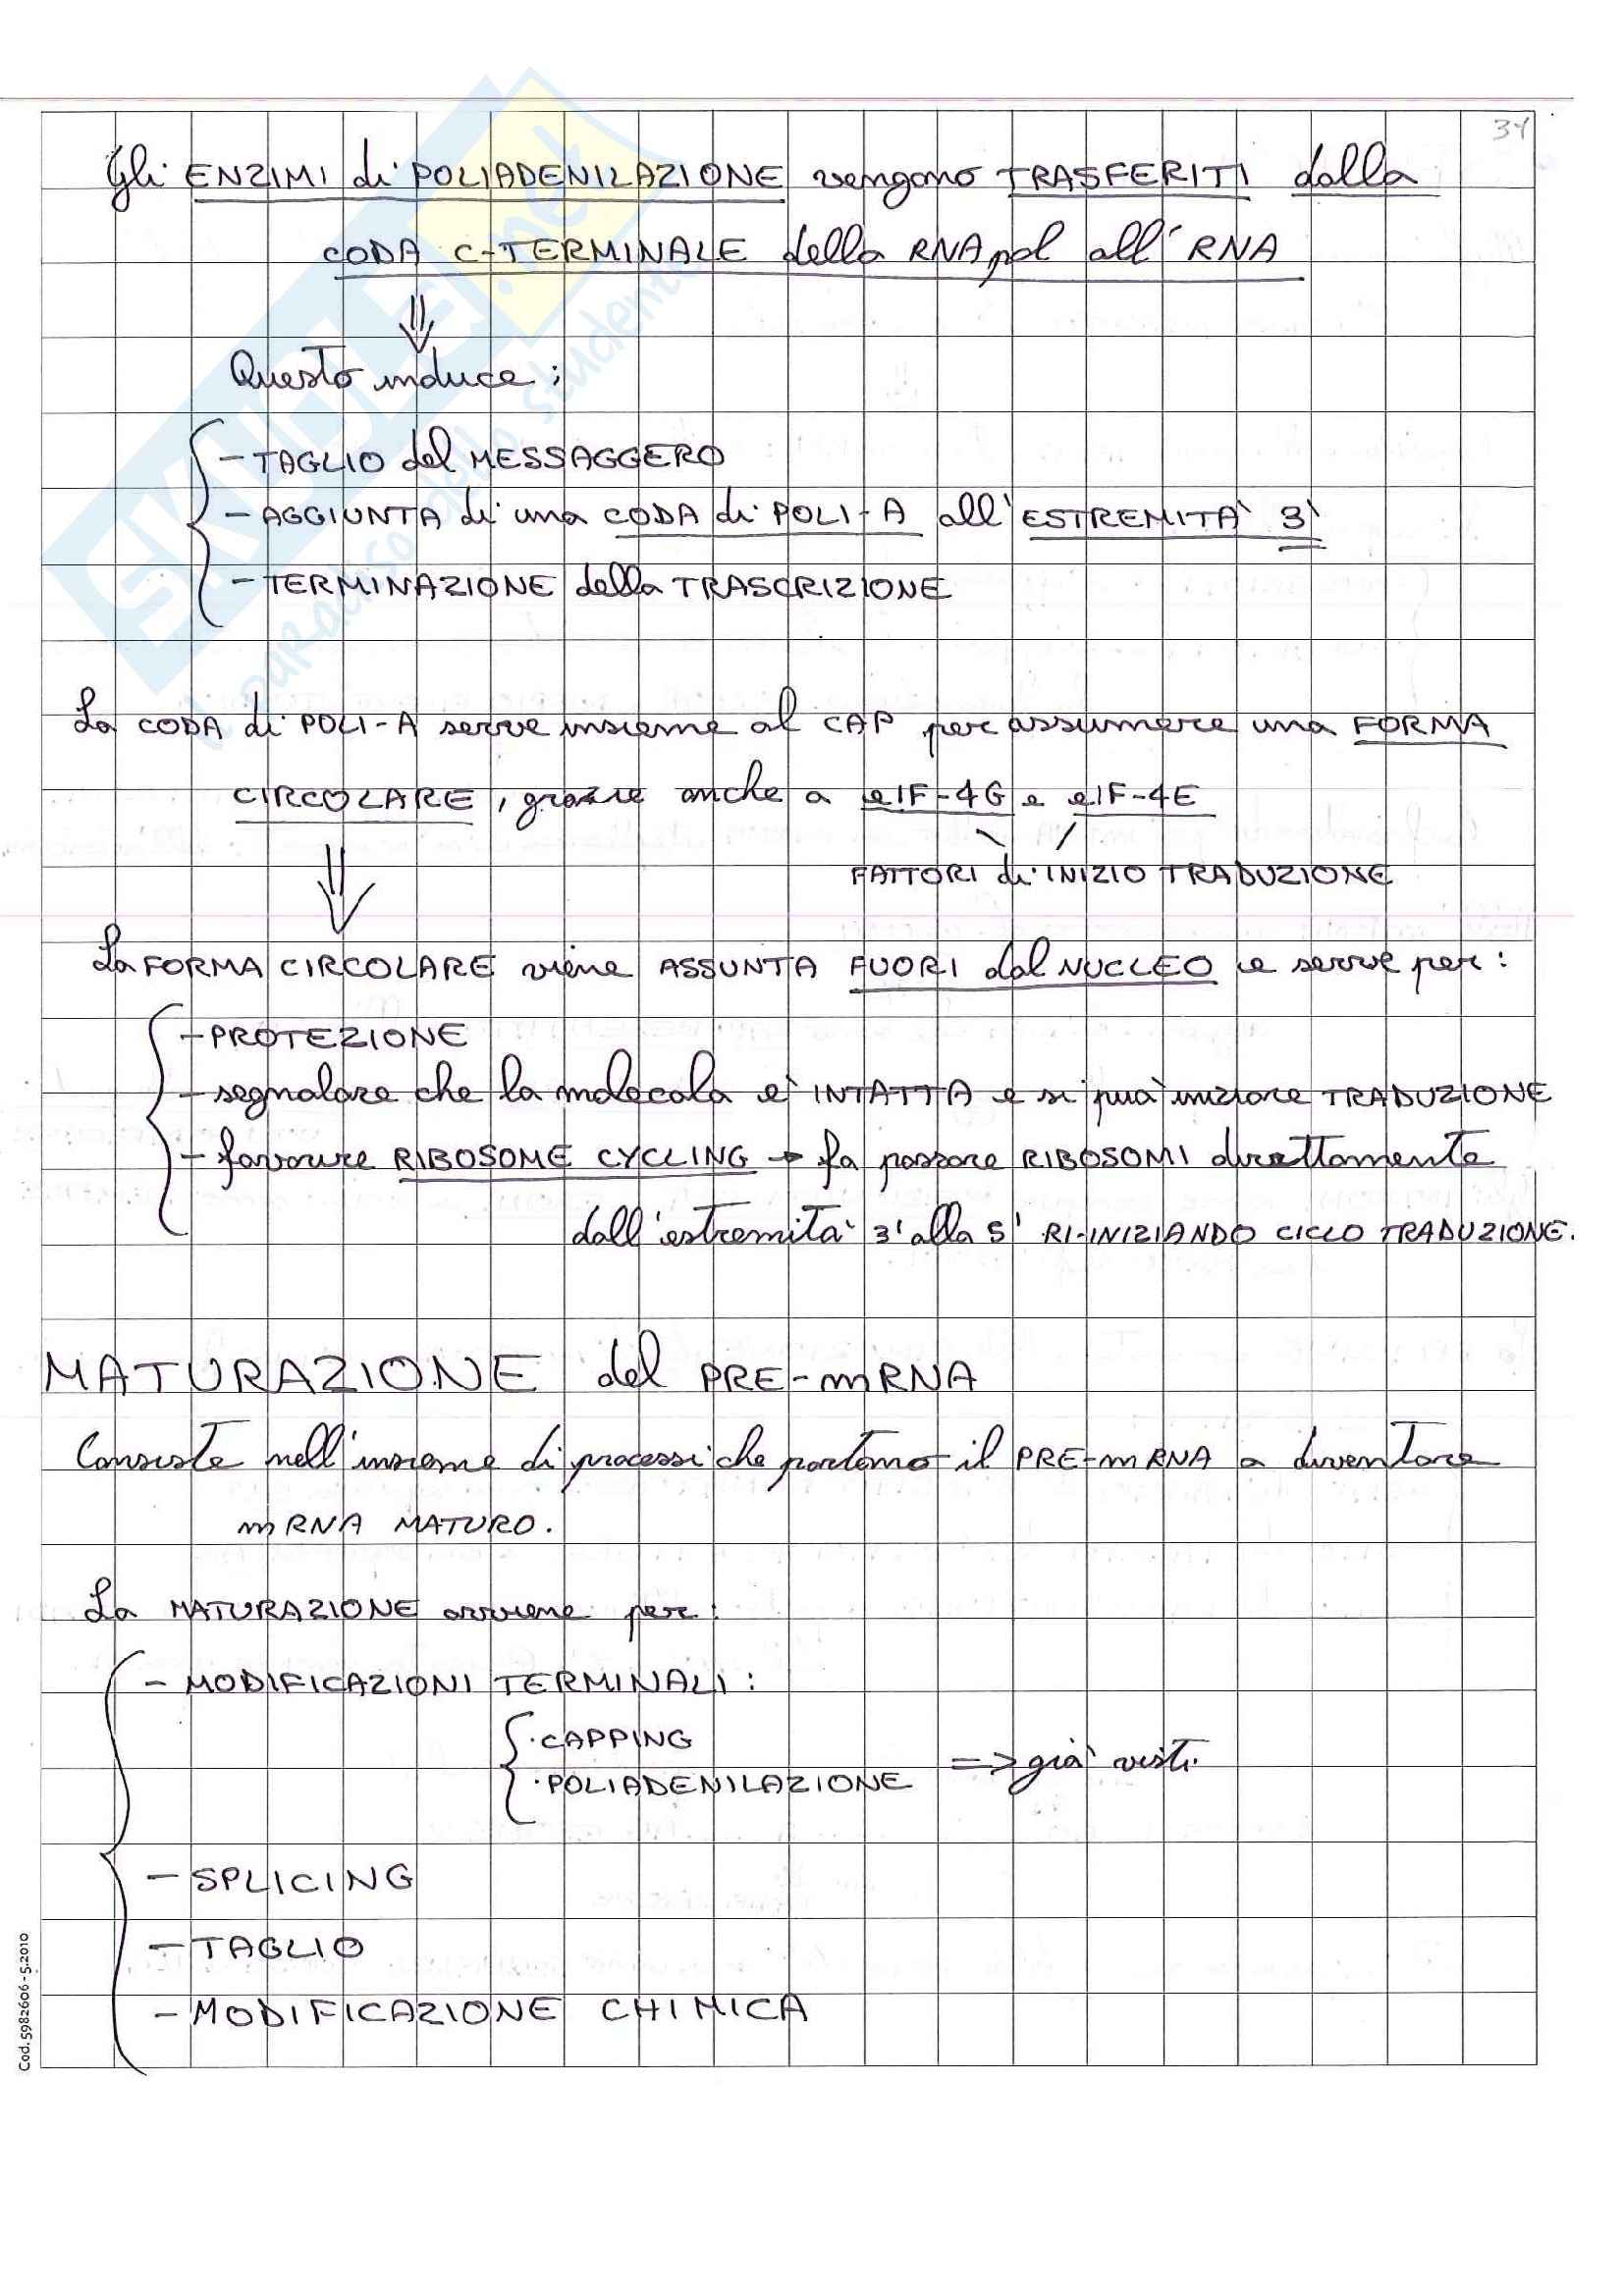 34
Gli ENZIMI di POLIADENILAZIONE vengono TRASFERITI dalla
CODA C-TERMINALE della RNA pol all'RNA
⇓
Questo induce:
- TAGLIO del MESSAGGERO
- AGGIUNTA di una CODA di POLI-A all'ESTREMITÀ 3'
- TERMINAZIONE della TRASCRIZIONE
La CODA di POLI-A serve insieme al CAP per assumere una FORMA
CIRCOLARE, grazie anche a eIF-4G e eIF-4E
FATTORI di INIZIO TRADUZIONE
⇓
La FORMA CIRCOLARE viene ASSUNTA FUORI dal NUCLEO e serve per:
- PROTEZIONE
- segnalare che la molecola e' INTATTA e si può iniziare TRADUZIONE
- favorire RIBOSOME CYCLING → fa passare RIBOSOMI direttamente
dall'estremità 3' alla 5' RI-INIZIANDO CICLO TRADUZIONE.
MATURAZIONE del PRE-mRNA
Consiste nell'insieme di processi che portano il PRE-mRNA a diventare
mRNA MATURO.
La MATURAZIONE avviene per:
- MODIFICAZIONI TERMINALI:
· CAPPING
· POLIADENILAZIONE => già visti
- SPLICING
- TAGLIO
- MODIFICAZIONE CHIMICA
Cod. 5982606 - 5.2010
SKUOLA.net
il paradiso dello studente